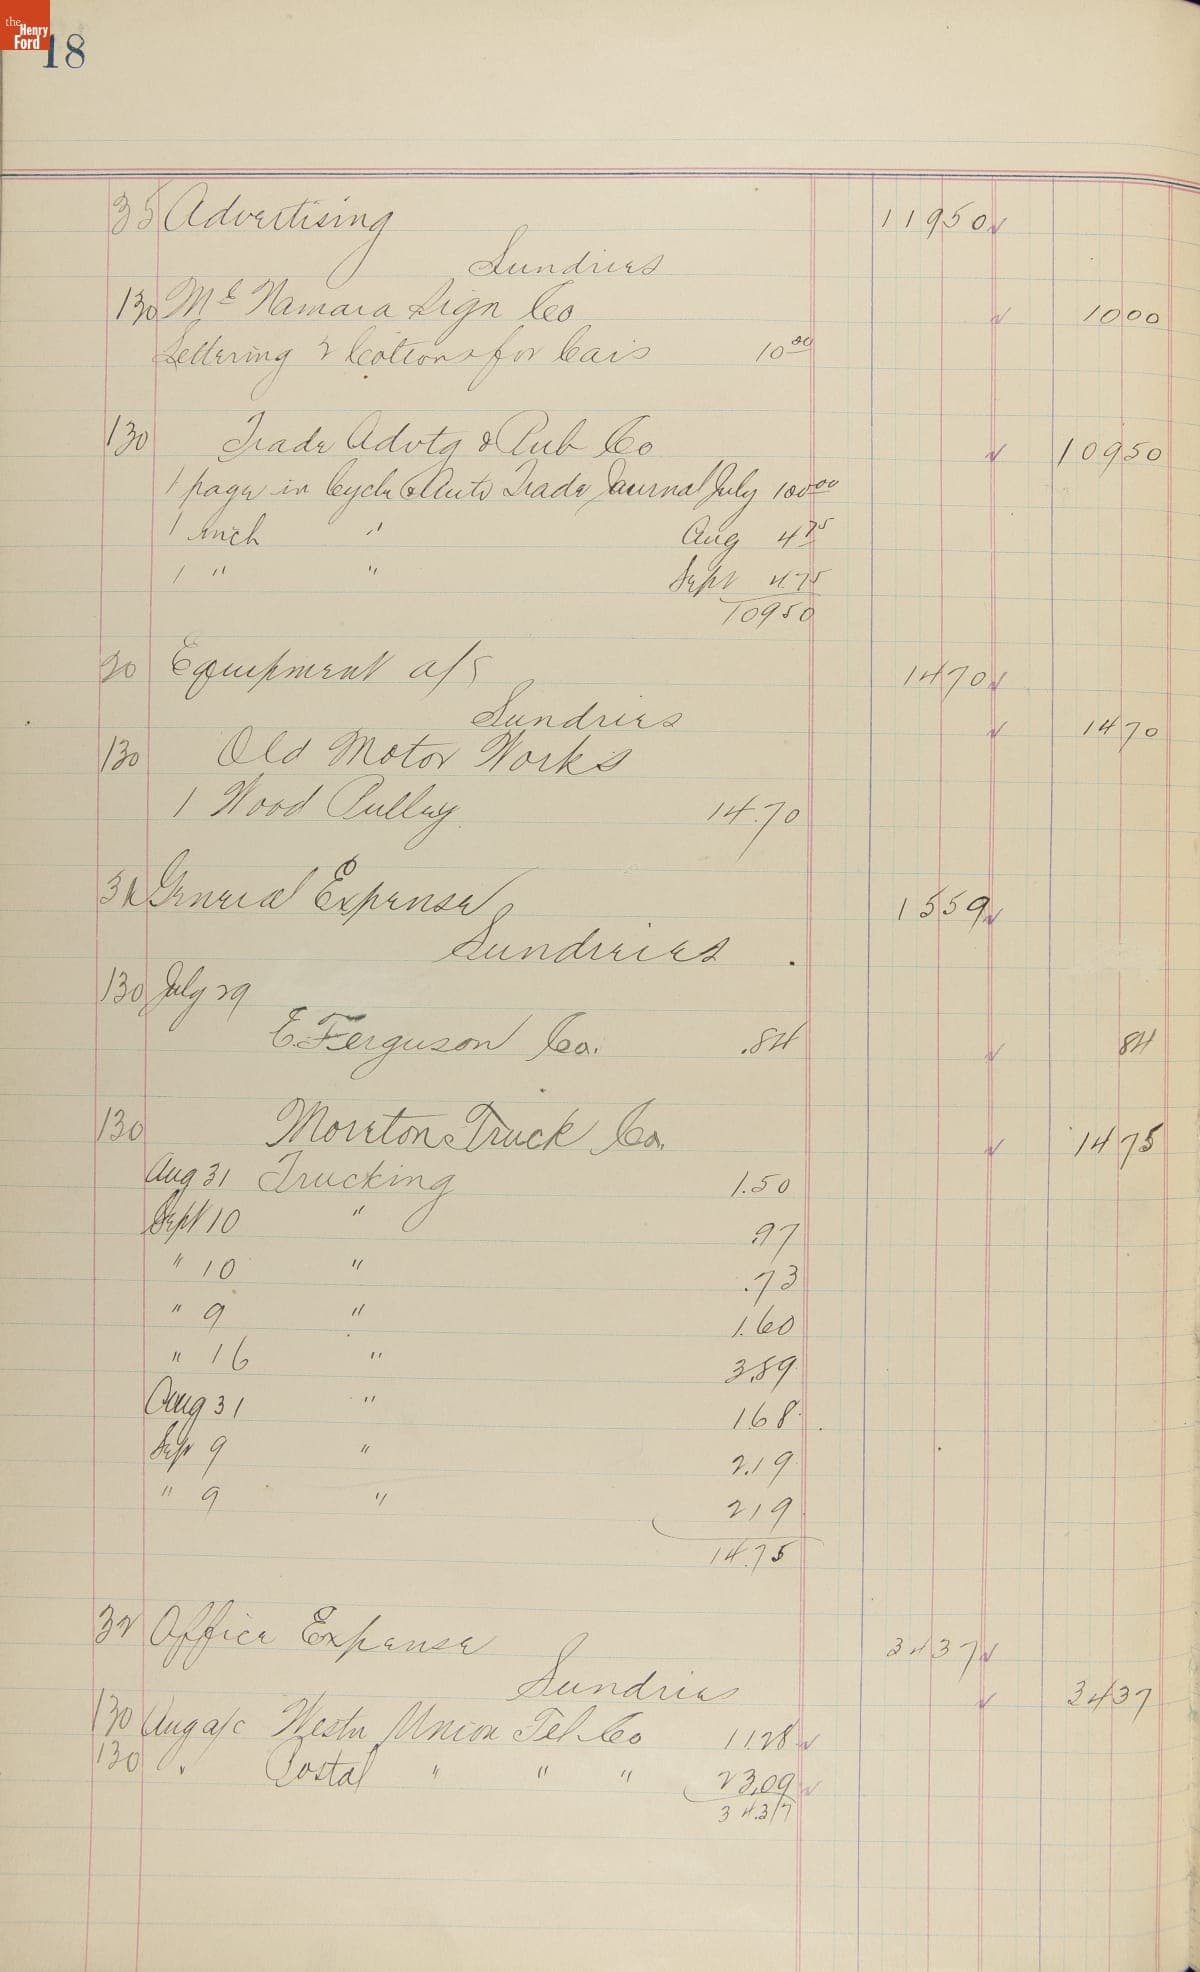 the Henry Ford
18
35 Advertising 11950
Sundries
130 Mc Namara Sign Co 1000
Lettering 2 Cotions for Cars 10 00
130 Trade Advtg & Pub Co 10950
1 page in Cycle & Auto Trade Journal July 100 00
1 inch " Aug 4 75
1 " " Sept 4.75
10950
20 Equipment a/c 1470
Sundries 1470
130 Old Motor Works
1 Wood Pulley 14.70
General Expense 1559
Sundreies
130 July 29
E. Ferguson Co. .84 84
130 Moreton Truck Co. 1475
Aug 31 Trucking 1.50
Sept 10 " .97
" 10 " .73
" 9 " 1.60
" 16 " 3.89
Aug 31 " 1.68
Sep 9 " 2.19
" 9 " 219
14.75
32 Office Expense 3437
Sundries 3437
130 Aug a/c Westn Union Tel Co 11.28
130 " Postal " " " 23.09
34.37